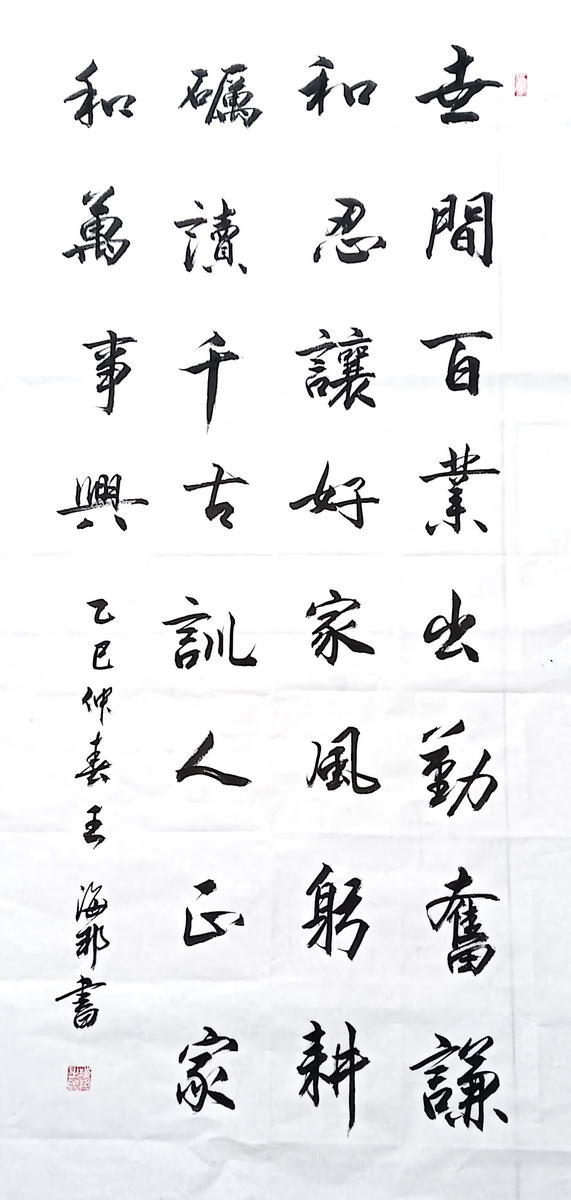 世間百業出勤奮謙
和忍讓好家風躬耕
礪讀千古訓人正家
和萬事興
乙巳仲春王海那書